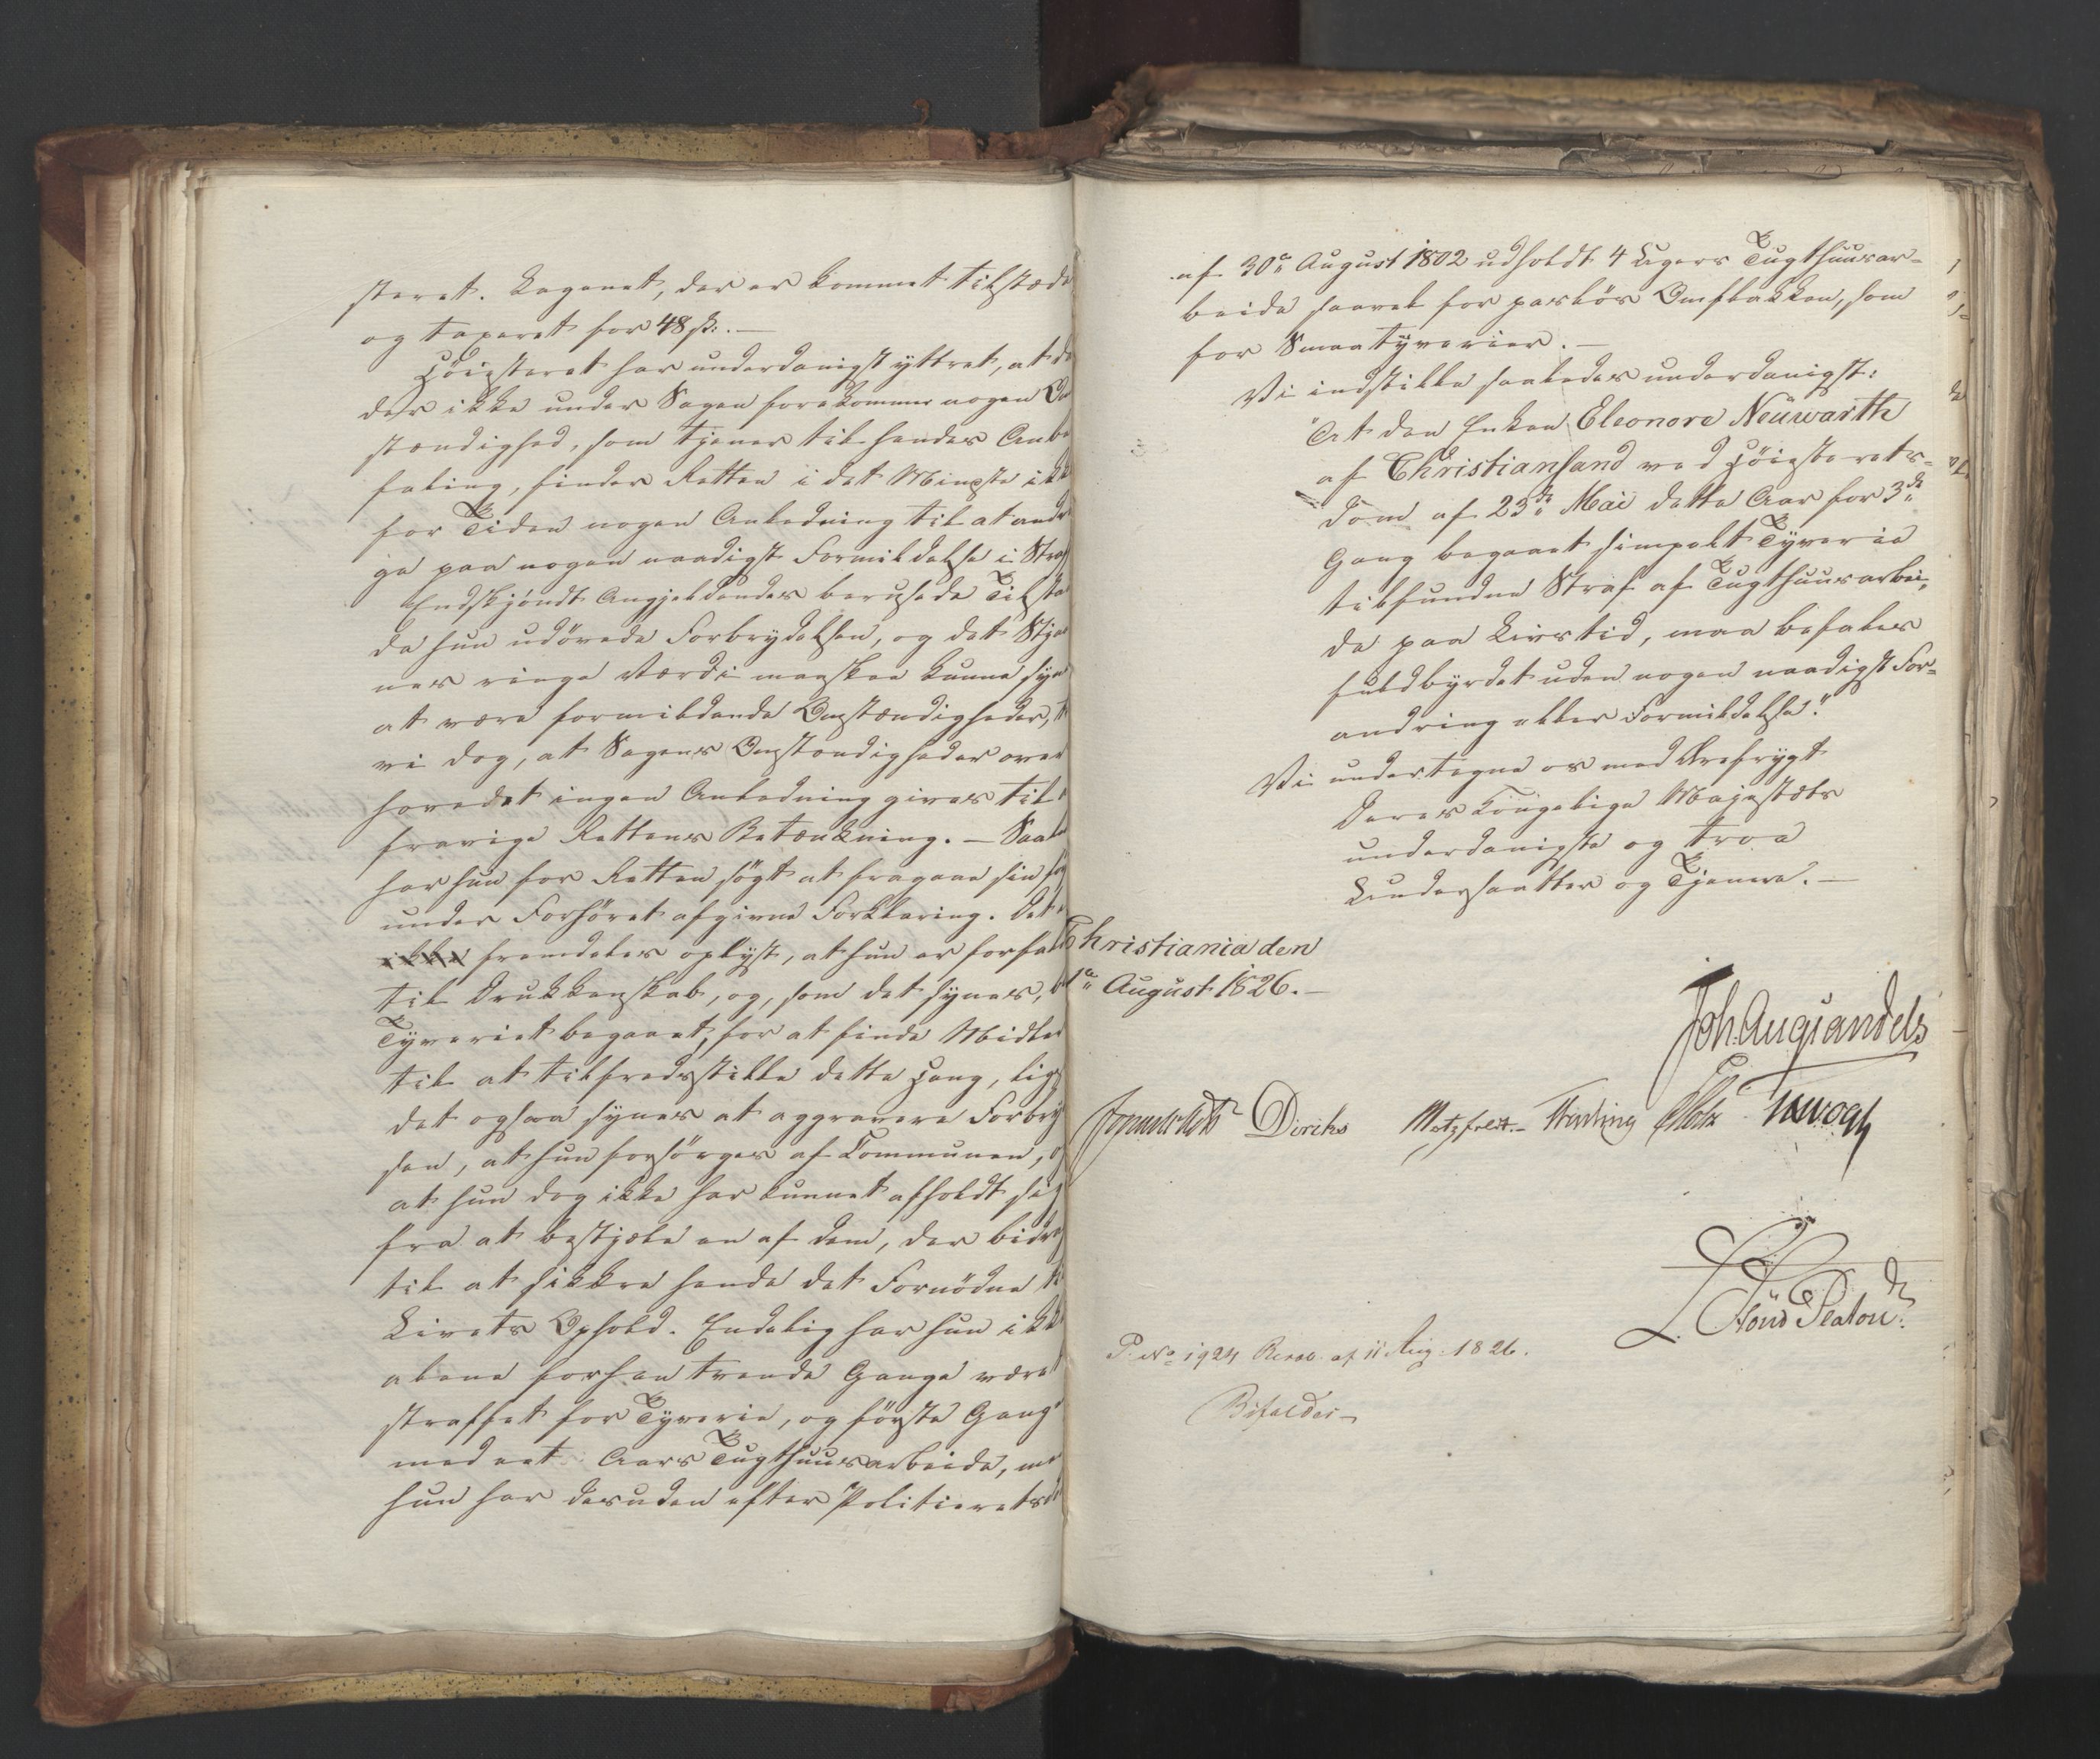 steret. Lagenet, der er kommet tilstæde
og taxeret for 48 ß. —
Høiesteret har underdanigst yttret, at da
der ikke under Sagen forekommer nogen Om
stændighed, som tjener til hendes Anbe
faling, finder Retten i det Mindste ikke
for Tiden nogen Anledning til at andra
ge paa nogen naadigst Formildelse i Straf
Endskjöndt Angjeldendes berusede Tilsta
da hun udövede Forbrydelsen, og det Stjaa
nes ringe Værdi maaskee kunne syne
at være formildende Omstændigheder, t
vi dog, at Sagens Omstændigheder over
hovedet ingen Anledning gives til
fravige Rettens Betænkning. — Saale
har hun for Retten sögt at fragaae sin
under Forhöret afgivne Forklaring. Det
fremdeles oplyst, at hun er forfal
til Drukkenskab, og, som det synes,
Tyveriet begaaet, for at finde Midler
til at tilfredsstille dette Hang, lige
det ogsaa synes at aggravere Forbry
sen, at hun forsörges af Communen, o
at hun dog ikke har kunnet afholdt sig
fra at bestjæle en af dem, der bidrog
til at sikkre hende det Fornödne t
Livets Ophold. Endelig har hun ikke
alene forhen trende Gange været
straffet for Tyverie, og förste Gang
med eet Aars Tugthuusarbeide, me
hun har desuden efter Politierets
af 30te August 1802 udholdt 4 Ugers Tugthuusar-
beide saavel for Omflakken, som
for Smaatyverier. —
Vi indstille saaledes underdanigst:
"At den Enken Eleonore Neuwarth
af Christiansand ved Høiesterets-
Dom af 23de Mai dette Aar for 3de
Gang begaaet simpelt Tyverie
tilfundne Straf af Tugthuusarbei-
de paa Livstid, maa befales
fuldbyrdet uden nogen naadigst For-
andring eller Formildelse."
Vi undertegne os med Ærefrygt
Deres Kongelige Majestæts
underdanigste og troe
Undersaatter og Tjenere. —
Christiania den
1te August 1826. —
Joh. Aug. Sandels
Diriks Motzfeldt. Holst
P. No 1924 Resol. af 11 Aug. 1826.
Bifaldes